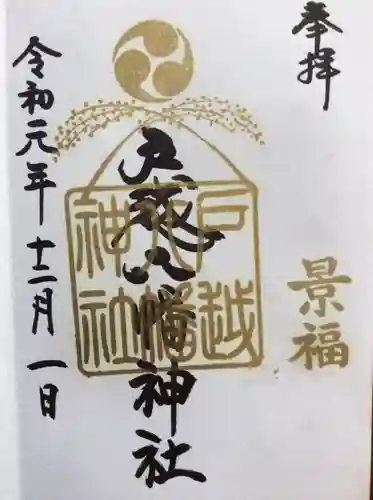 奉拝
景福
戸越八幡神社
戸越
八幡
神社
令和元年十二月一日